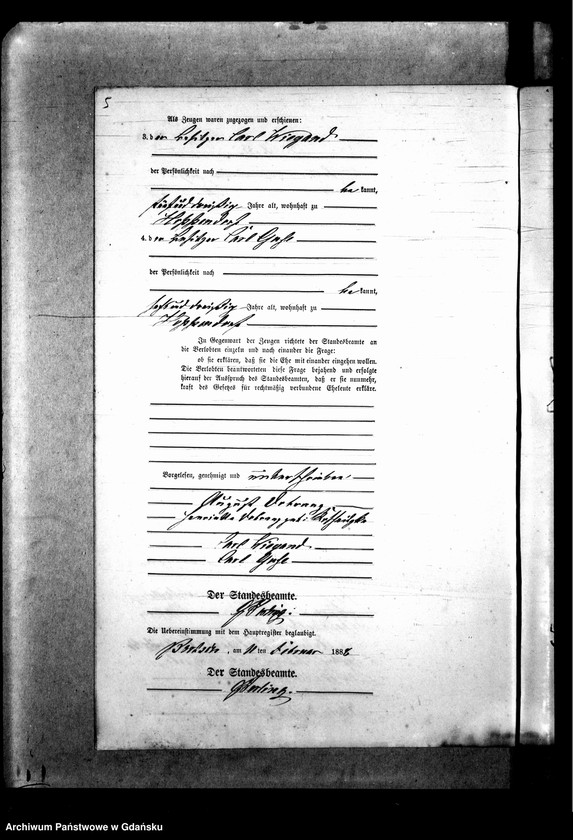 5
Als Zeugen waren zugezogen und erschienen:
3. der Besitzer Carl Wiegand
der Persönlichkeit nach
bekannt,
fünfunddreißig Jahre alt, wohnhaft zu
Hoppendorf
4. der Besitzer Carl
der Persönlichkeit nach
bekannt,
Jahre alt, wohnhaft zu
Hoppendorf
In Gegenwart der Zeugen richtete der Standesbeamte an
die Verlobten einzeln und nach einander die Frage:
ob sie erklären, daß sie die Ehe mit einander eingehen wollen.
Die Verlobten beantworteten diese Frage bejahend und erfolgte
hierauf der Ausspruch des Standesbeamten, daß er sie nunmehr,
kraft des Gesetzes für rechtmäßig verbundene Eheleute erkläre.
Vorgelesen, genehmigt und unterschrieben
August
Henriette
Carl Wiegand
Carl
Der Standesbeamte.
Die Uebereinstimmung mit dem Hauptregister beglaubigt.
, am 11 ten Februar 1888
Der Standesbeamte.
Archiwum Państwowe w Gdańsku